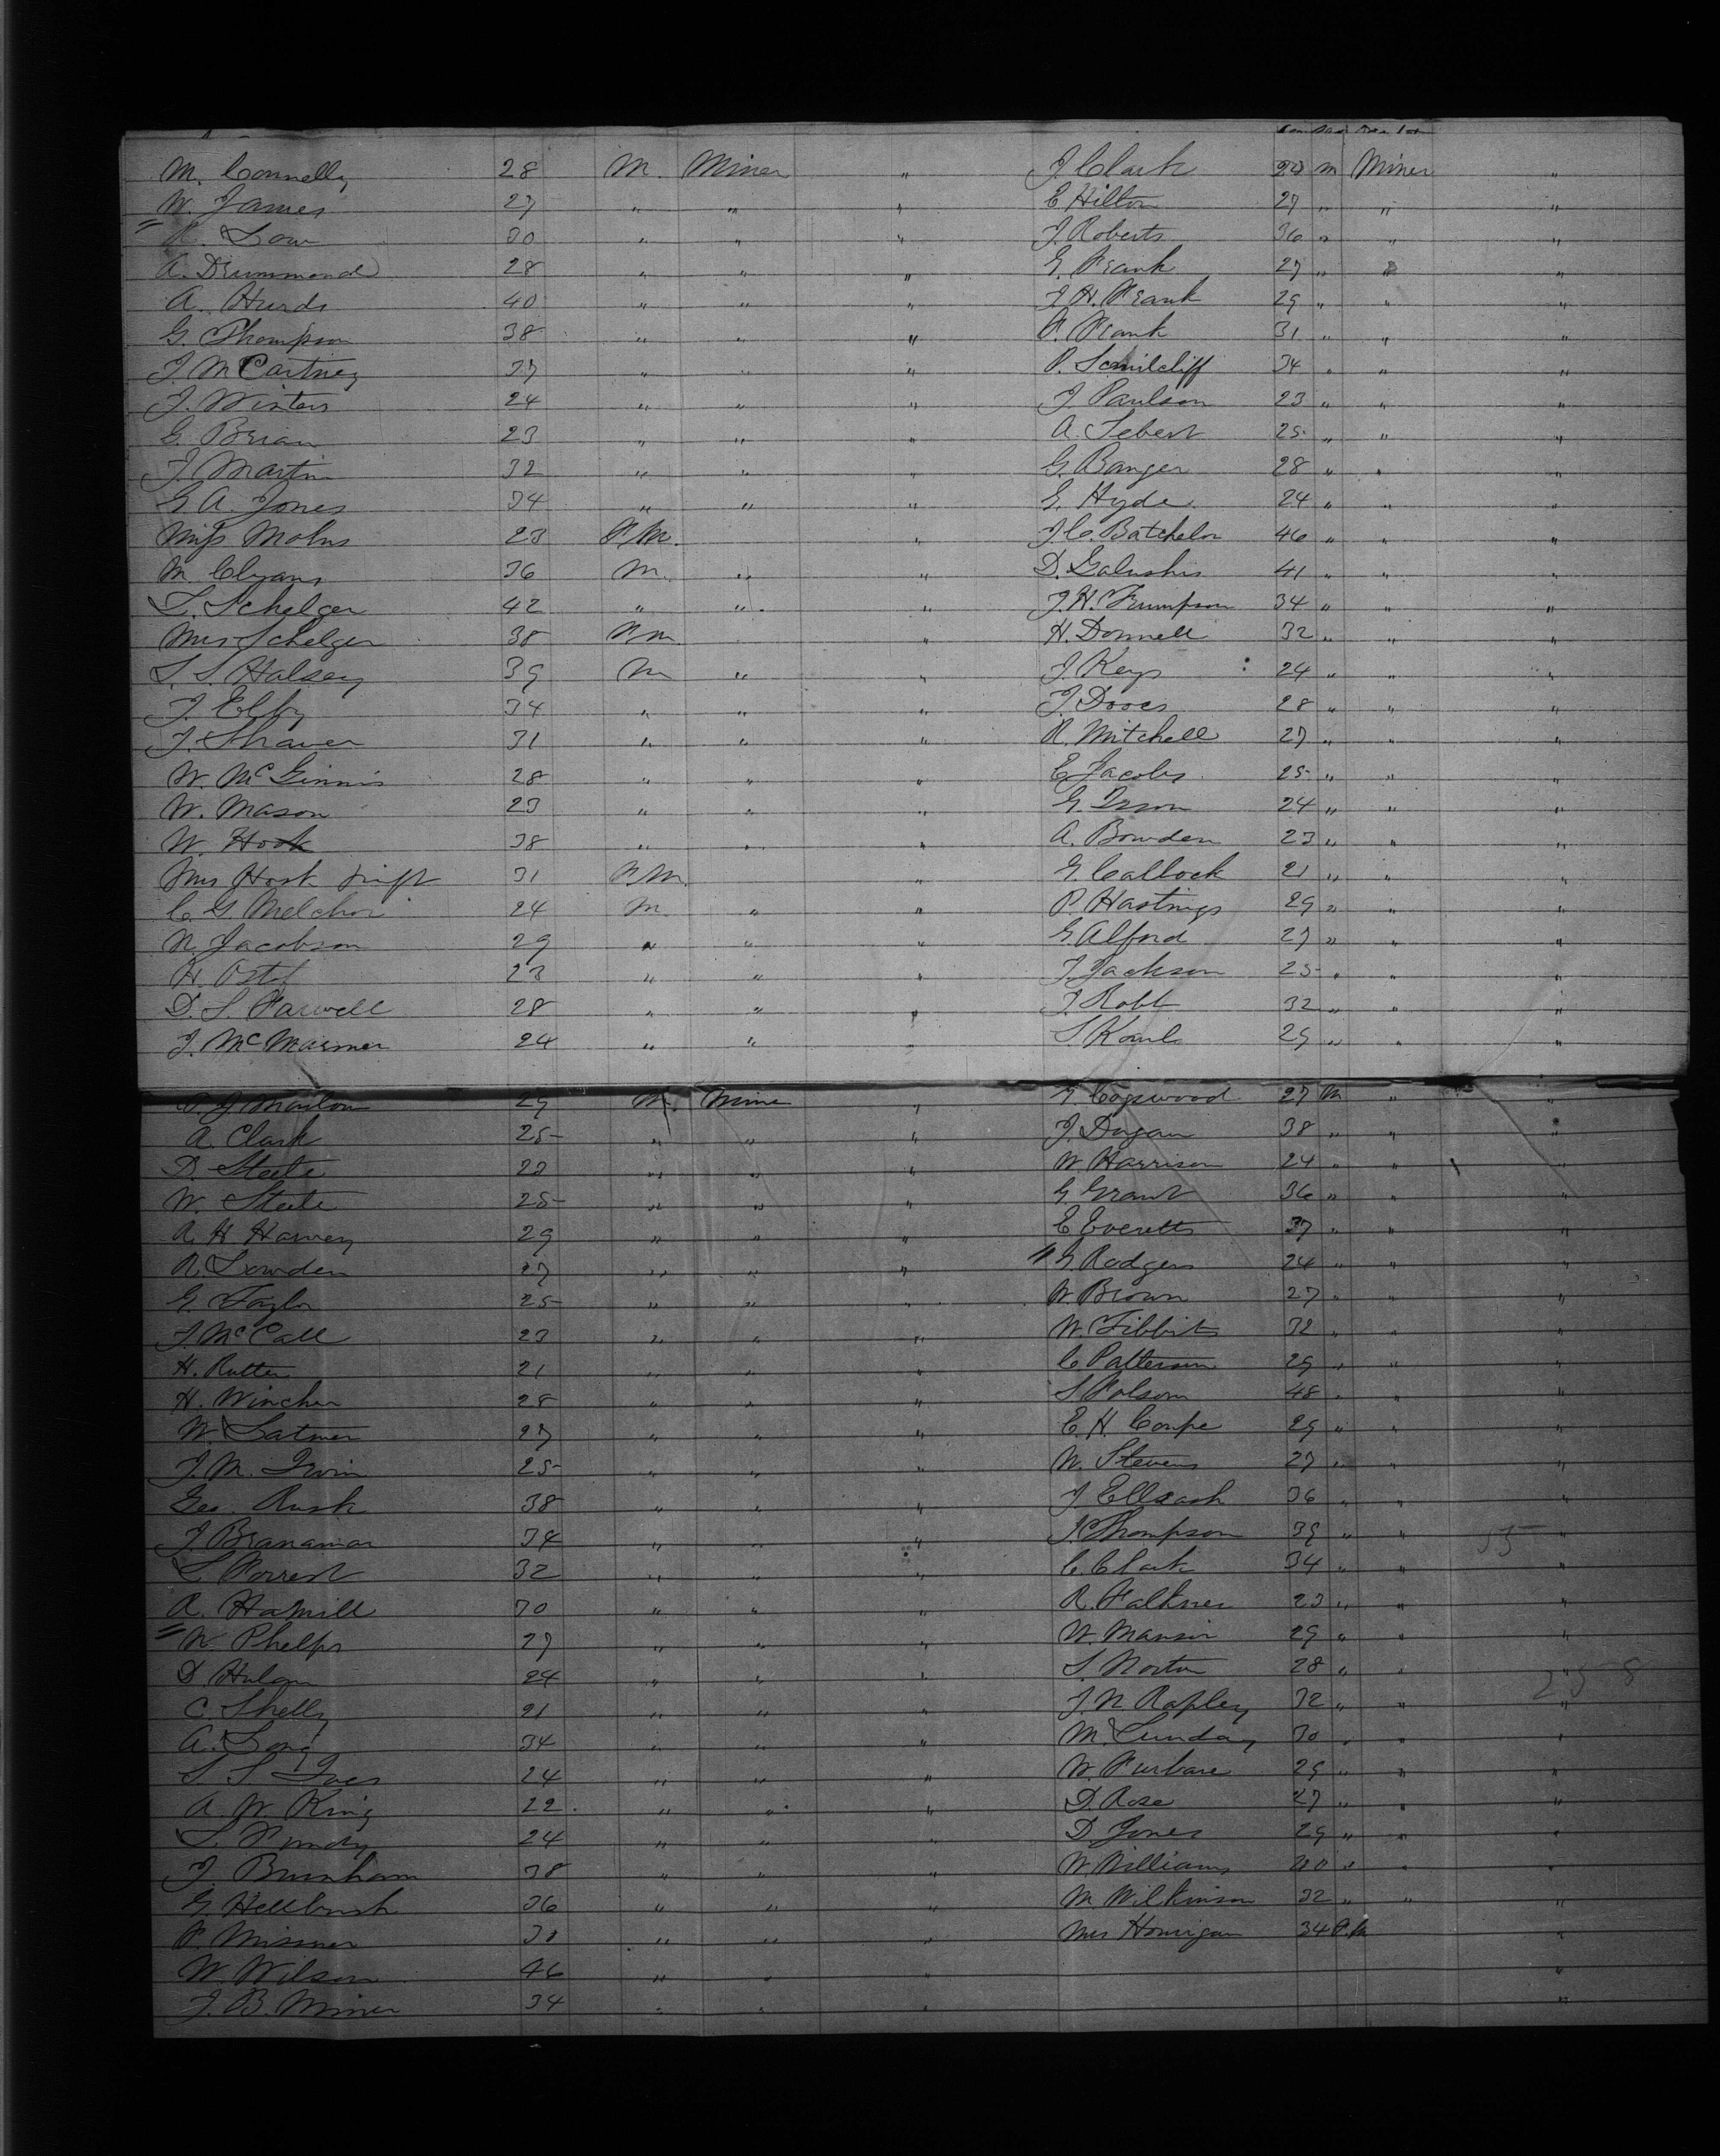 M. Connelly 28 M. Miner "
W. James 27 " " "
R. Low 30 " " "
A. Drummond 28 " " "
A. Hurds 40 " " "
G. Thompson 38 " " "
J. McCartney 37 " " "
J. Winters 24 " " "
G. Brian 23 " " "
J. Martin 32 " " "
G A. Jones 34 " " "
Miss Mohns 23 F.M. "
M. Clyans 36 M. " "
L. Schelger 42 " " "
Mrs Schelger 38 F M "
L. S. Halsey 39 M " "
J. Elby 34 " " "
J. Shaver 31 " " "
W. McGinnis 28 " " "
W. Mason 23 " " "
W. Hook 38 " " "
Mrs Hook 31 F.M. "
C. G. Melchor 24 M. " "
N. Jacobson 29 " " "
H. 23 " " "
D. S. Farwell 28 " " "
J. McMarmer 24 " " "
J. Marlow 29 M. Mine "
A. Clark 25 " " "
D. Steele 22 " " "
W. Steele 25 " " "
R. H Harvey 29 " " "
R. Lowden 27 " " "
G. Taylor 25 " " "
J. McCall 23 " " "
H. Rutter 21 " " "
H. Wincher 28 " " "
W Latmer 27 " " "
J. M. Irvin 25 " " "
Geo. Rusk 38 " " "
J Branaman 34 " " "
L. Forrest 32 " " "
R. Hamill 30 " " "
W. Phelps 27 " " "
D Hulan 24 " " "
C Shelly 21 " " "
A. Long 34 " " "
S S Ives 24 " " "
A. W. King 22. " " "
L. Pundy 24 " " "
J. Burnham 38 " " "
G. Hellbush 36 " " "
F. Missner " " "
W. Wilson 46 " " "
J. B. Miner 34 " " "
J Clark m Miner "
E Hilton 27 " " "
J. Roberts 36 " " "
G. Frank 27 " " "
J. H. Frank 29 " " "
F. Frank 31 " " "
P. Schmilcliff 34 " " "
J Paulson 23 " " "
A. Sebert 25 " " "
G. Banger 28 " " "
G. Hyde 24 " " "
J. C. Batchelor 46 " " "
D. Galushis 41 " " "
J. H. Frumpson 34 " " "
H. Donnell 32 " " "
J. Keys 24 " " "
J. Doves 28 " " "
R. Mitchell 27 " " "
E. Jacobs 25 " " "
G. 24 " " "
A. Bowden 23 " " "
G. Callock 21 " " "
P. Hastings 29 " " "
G. Alford 27 " " "
J. Jackson 25 " " "
J. Robb 32 " " "
S. Kouls 29 " " "
Cogswood 27 M " "
J. Dugan 38 " " "
W. Harrison 24 " " "
G Grant 36 " " "
E Everetts 37 " " "
G. Rodgers 24 " " "
W. Brown 27 " " "
W. Tibbits 32 " " "
C Patterson 29 " " "
S. Folsom 48 " " "
E. H. Coupe 29 " " "
W. Stevens 27 " " "
J Ellsash 36 " " "
J. Thompson 39 " " "
C. Clark 34 " " "
R. Falkner 23 " " "
W. Mansir 29 " " "
S. Norton 28 " " "
J. N. Rapley 32 " " "
M. Lunday 30 " " "
W. Furbare 29 " " "
D. Rose 27 " " "
D Jones 29 " " "
W Williams 40 " " "
M Wilkinson 32 " " "
Mrs Hourigan 34 F.M "